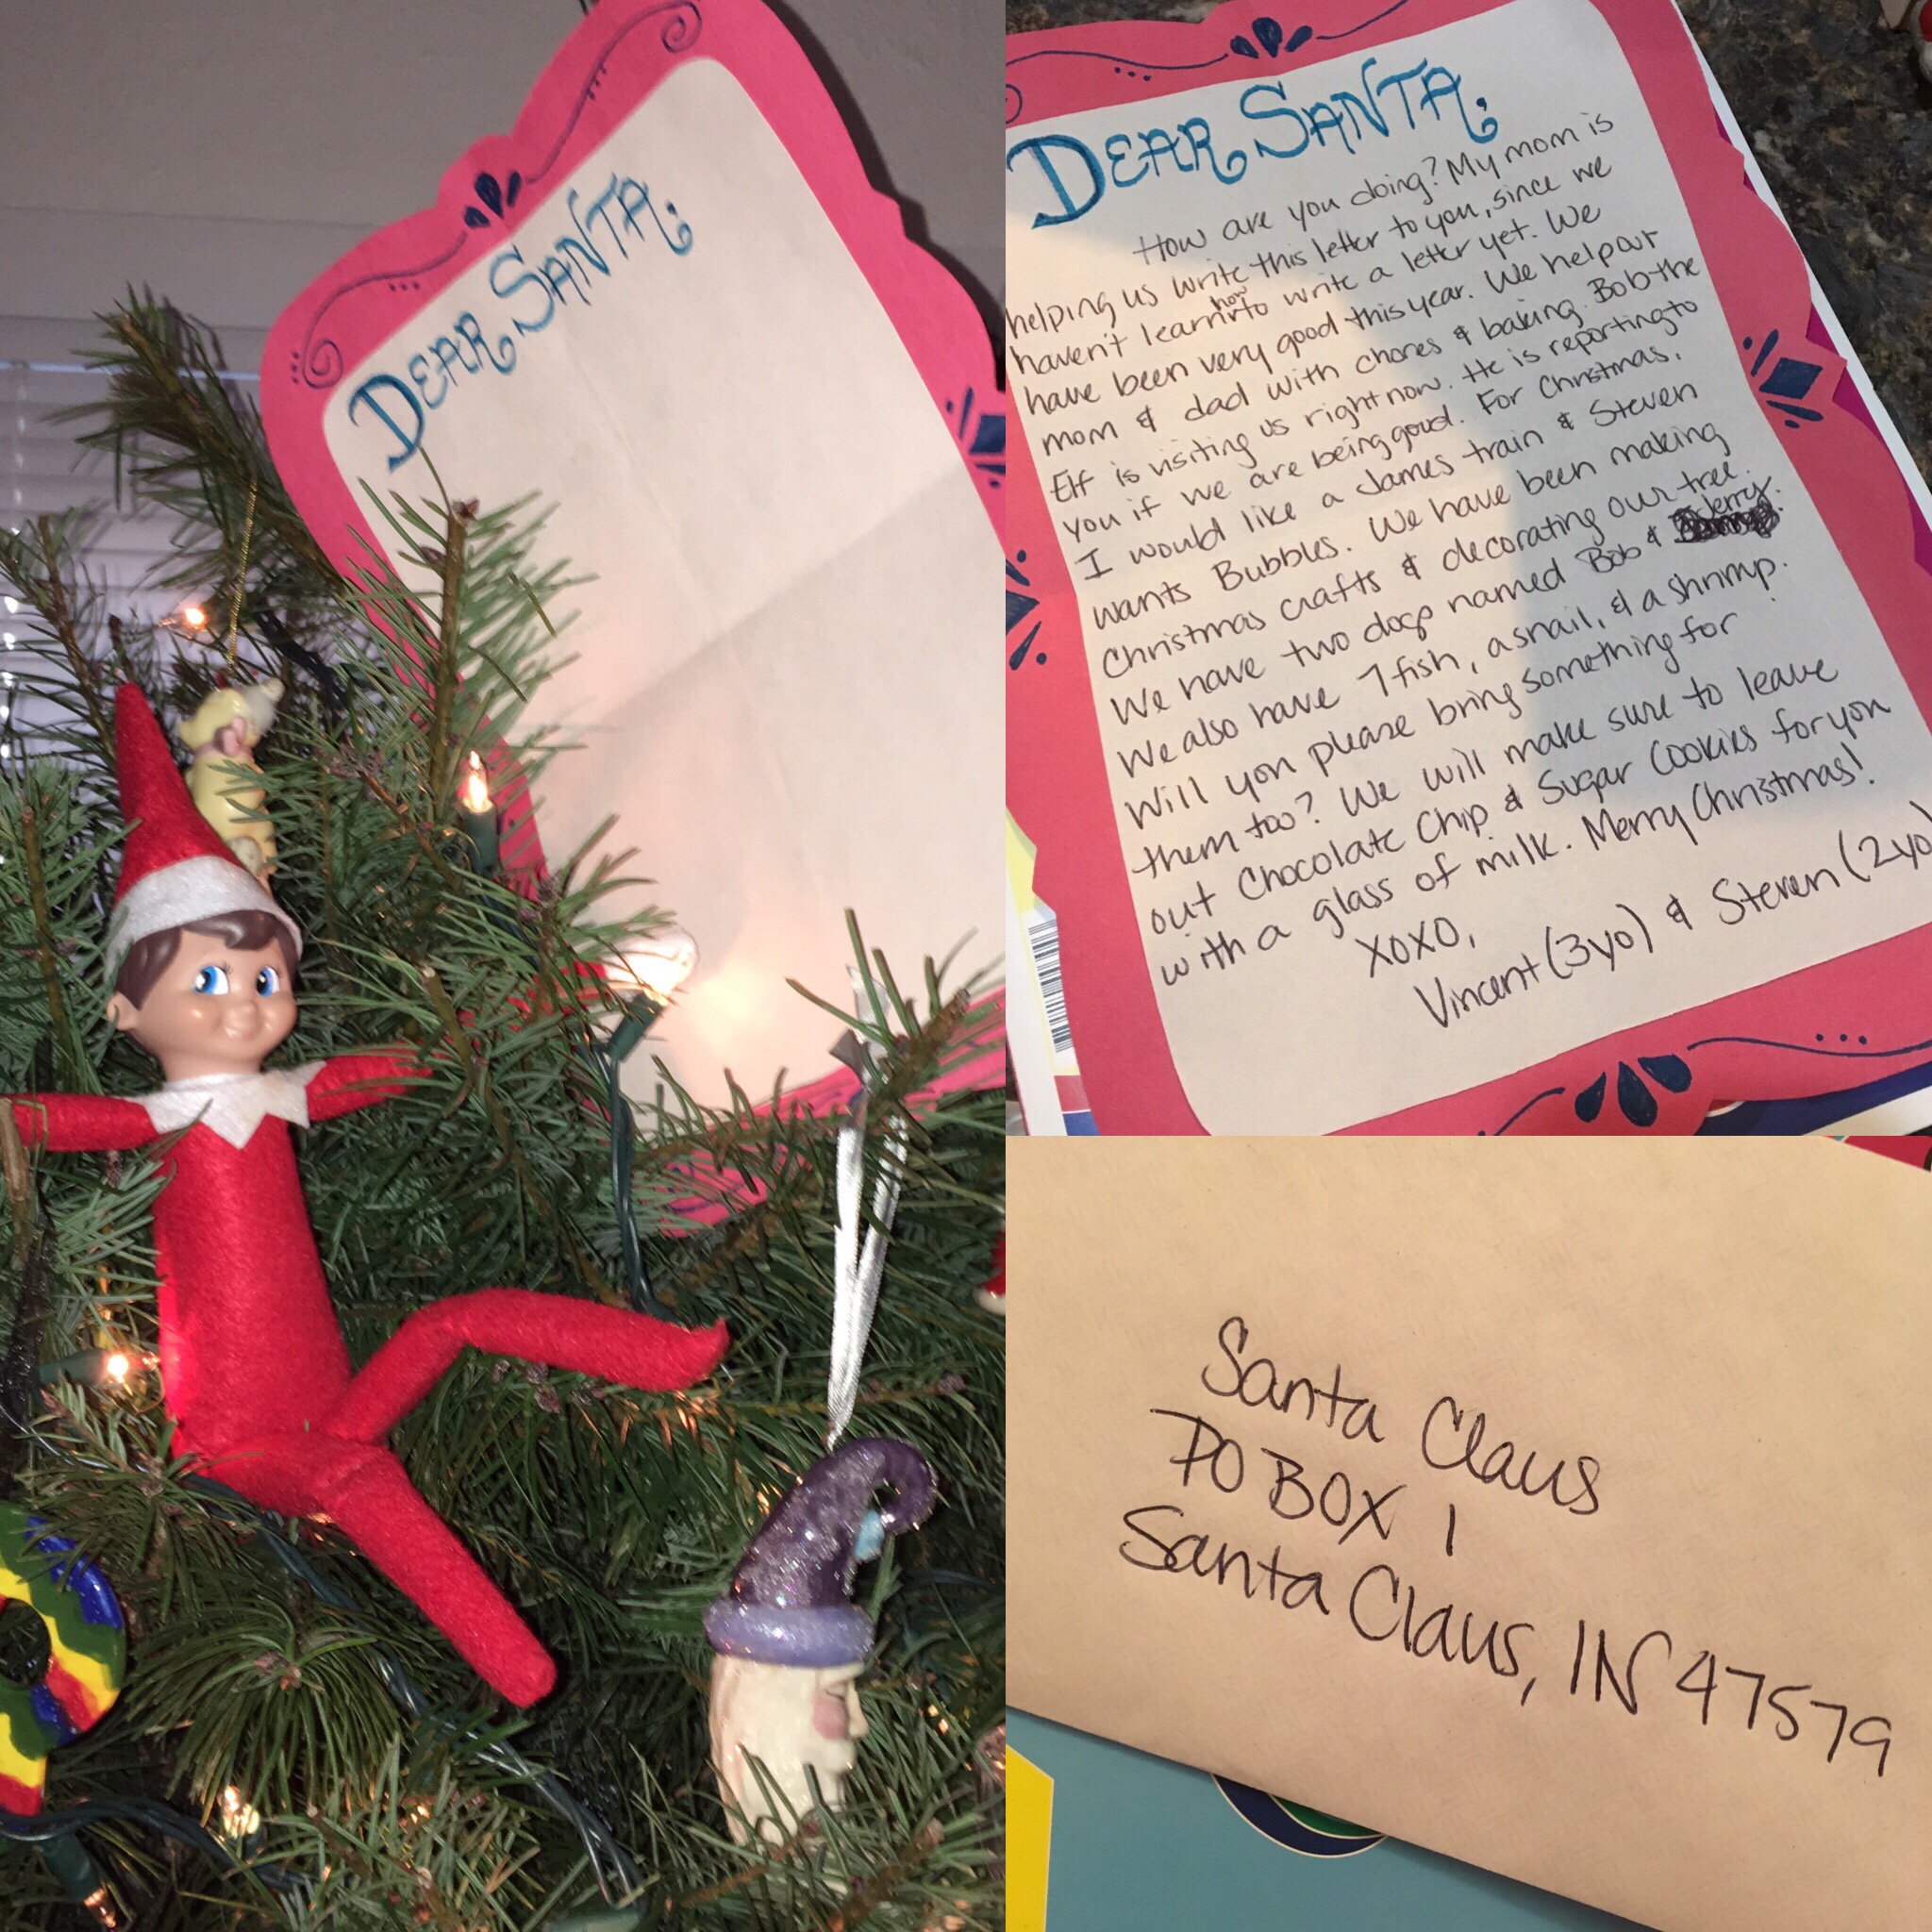 DEAR SANTA,
DEAR SANTA,
How are you doing? My mom is
helping us write this letter to you, since we
haven't learn how to write a letter yet. We
have been very good this year. We help our
mom & dad with chores & baking. Bob the
Elf is visiting us right now. He is reporting to
you if we are being good. For Christmas,
I would like a James train & Steven
wants Bubbles. We have been making
Christmas crafts & decorating our tree.
We have two dogs named Bob & Jerry.
We also have 7 fish, a snail, & a shrimp.
Will you please bring something for
them too? We will make sure to leave
out Chocolate Chip & Sugar Cookies for you
with a glass of milk. Merry Christmas!
XOXO,
Vincent (3yo) & Steven (2yo)
Santa Claus
PO BOX 1
Santa Claus, IN 47579